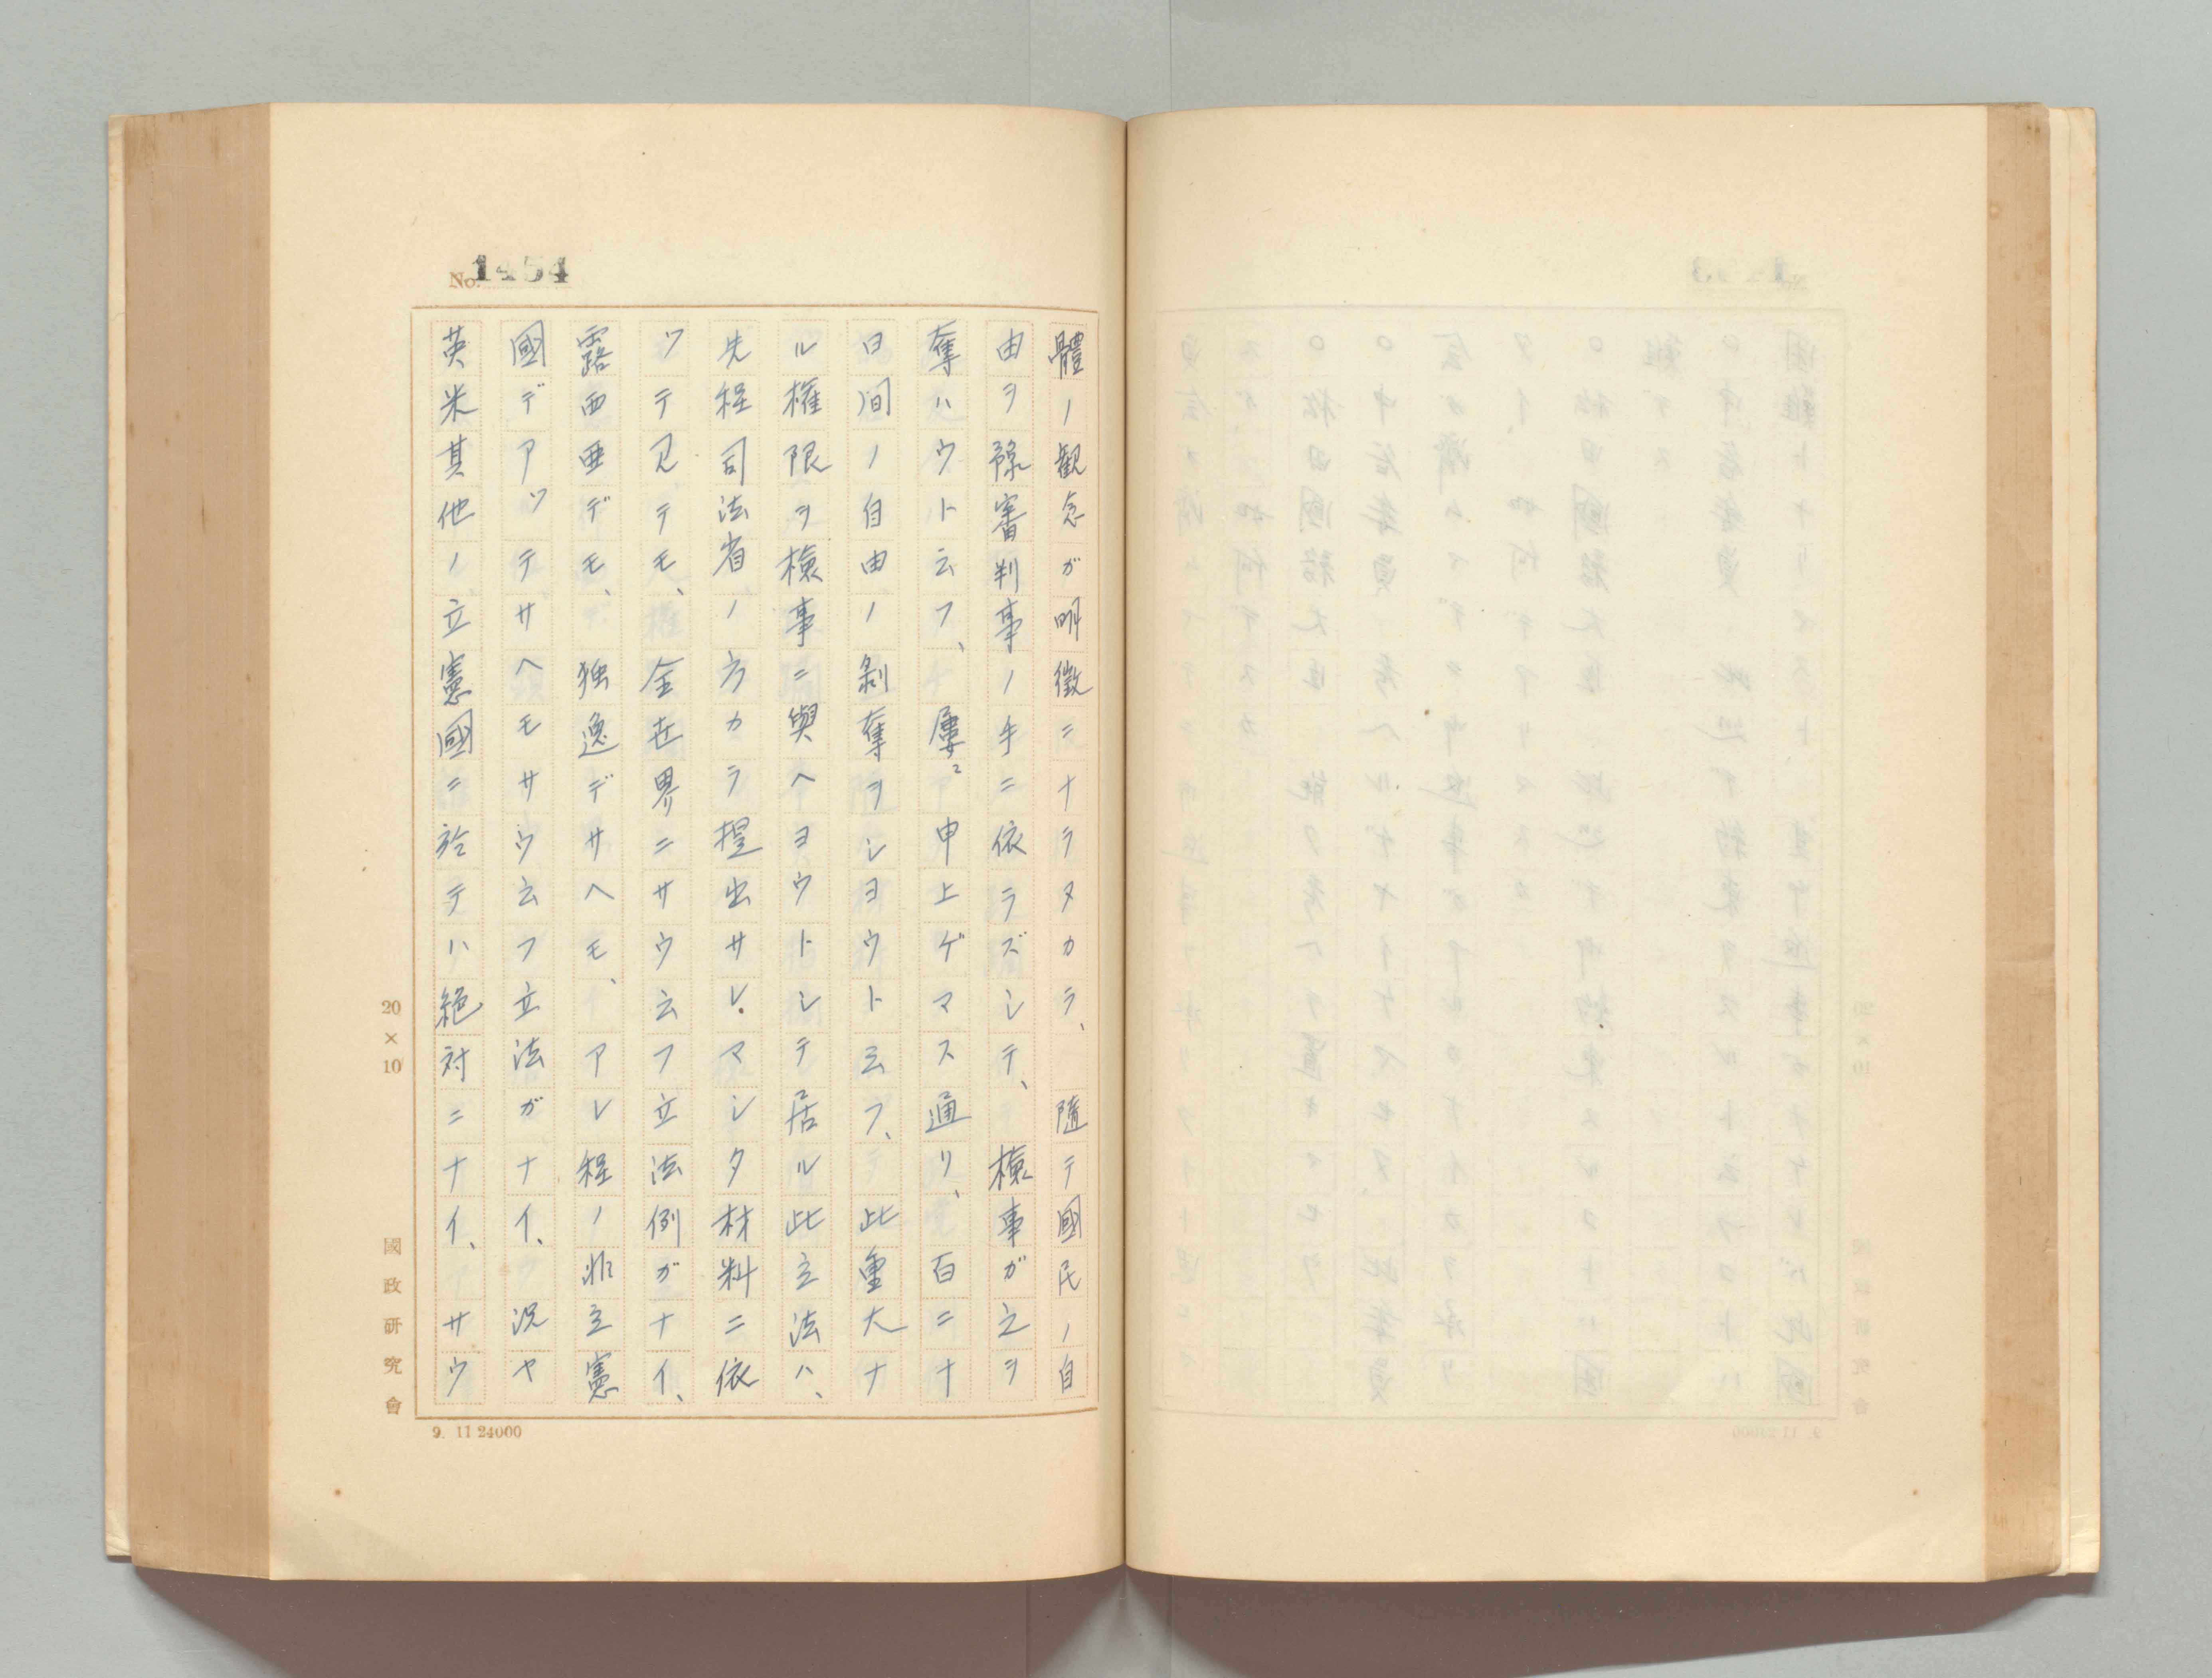 No. 1454
體ノ観念ガ明徴ニナラヌカラ、隨テ國民ノ自
由ヲ豫審判事ノ手ニ依ラズシテ、檢事ガ之ヲ
奪ハウト云フ、屢〻申上ゲマス通リ、百ニナ
日间ノ自由ノ剝奪ヲシヨウト云フ、此重大ナ
ル権限ヲ檢事ニ與ヘヨウトシテ居ル此立法ハ、
先程司法省ノ方カラ提出サレマシタ材料ニ依
ツテ見テモ、全世界ニサウ云フ立法例ガナイ、
露西亜デモ、独逸デサヘモ、アレ程ノ非立憲
國デアツテサヘモサウ云フ立法ガナイ、況ヤ
英米其他ノ立憲國ニ於テハ絶対ニナイ、サウ
20×10
國政研究會
9. 11 24000